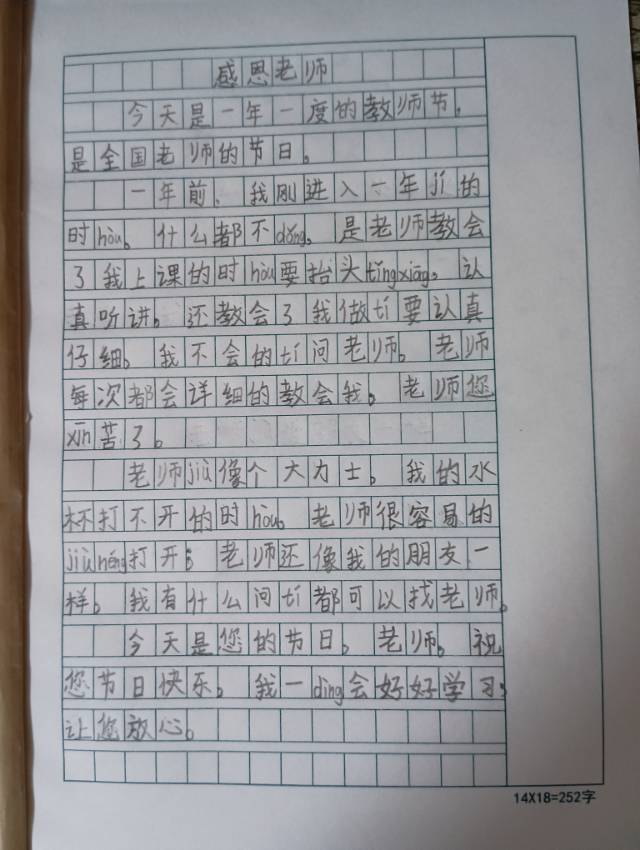 感恩老师
今天是一年一度的教师节，
是全国老师的节日。
一年前，我刚进入一年jí的
时hòu，什么都不dǒng，是老师教会
了我上课的时hòu要抬头tǐngxiāng，认
真听讲。还教会了我做tí要认真
仔细。我不会的tí问老师。老师
每次都会详细的教会我。老师您
xīn苦了。
老师jiù像个大力士。我的水
杯打不开的时hòu。老师很容易的
jiùnéng打开；老师还像我的朋友一
样。我有什么问tí都可以找老师。
今天是您的节日。老师。祝
您节日快乐。我一dìng会好好学习，
让您放心。
14X18=252字